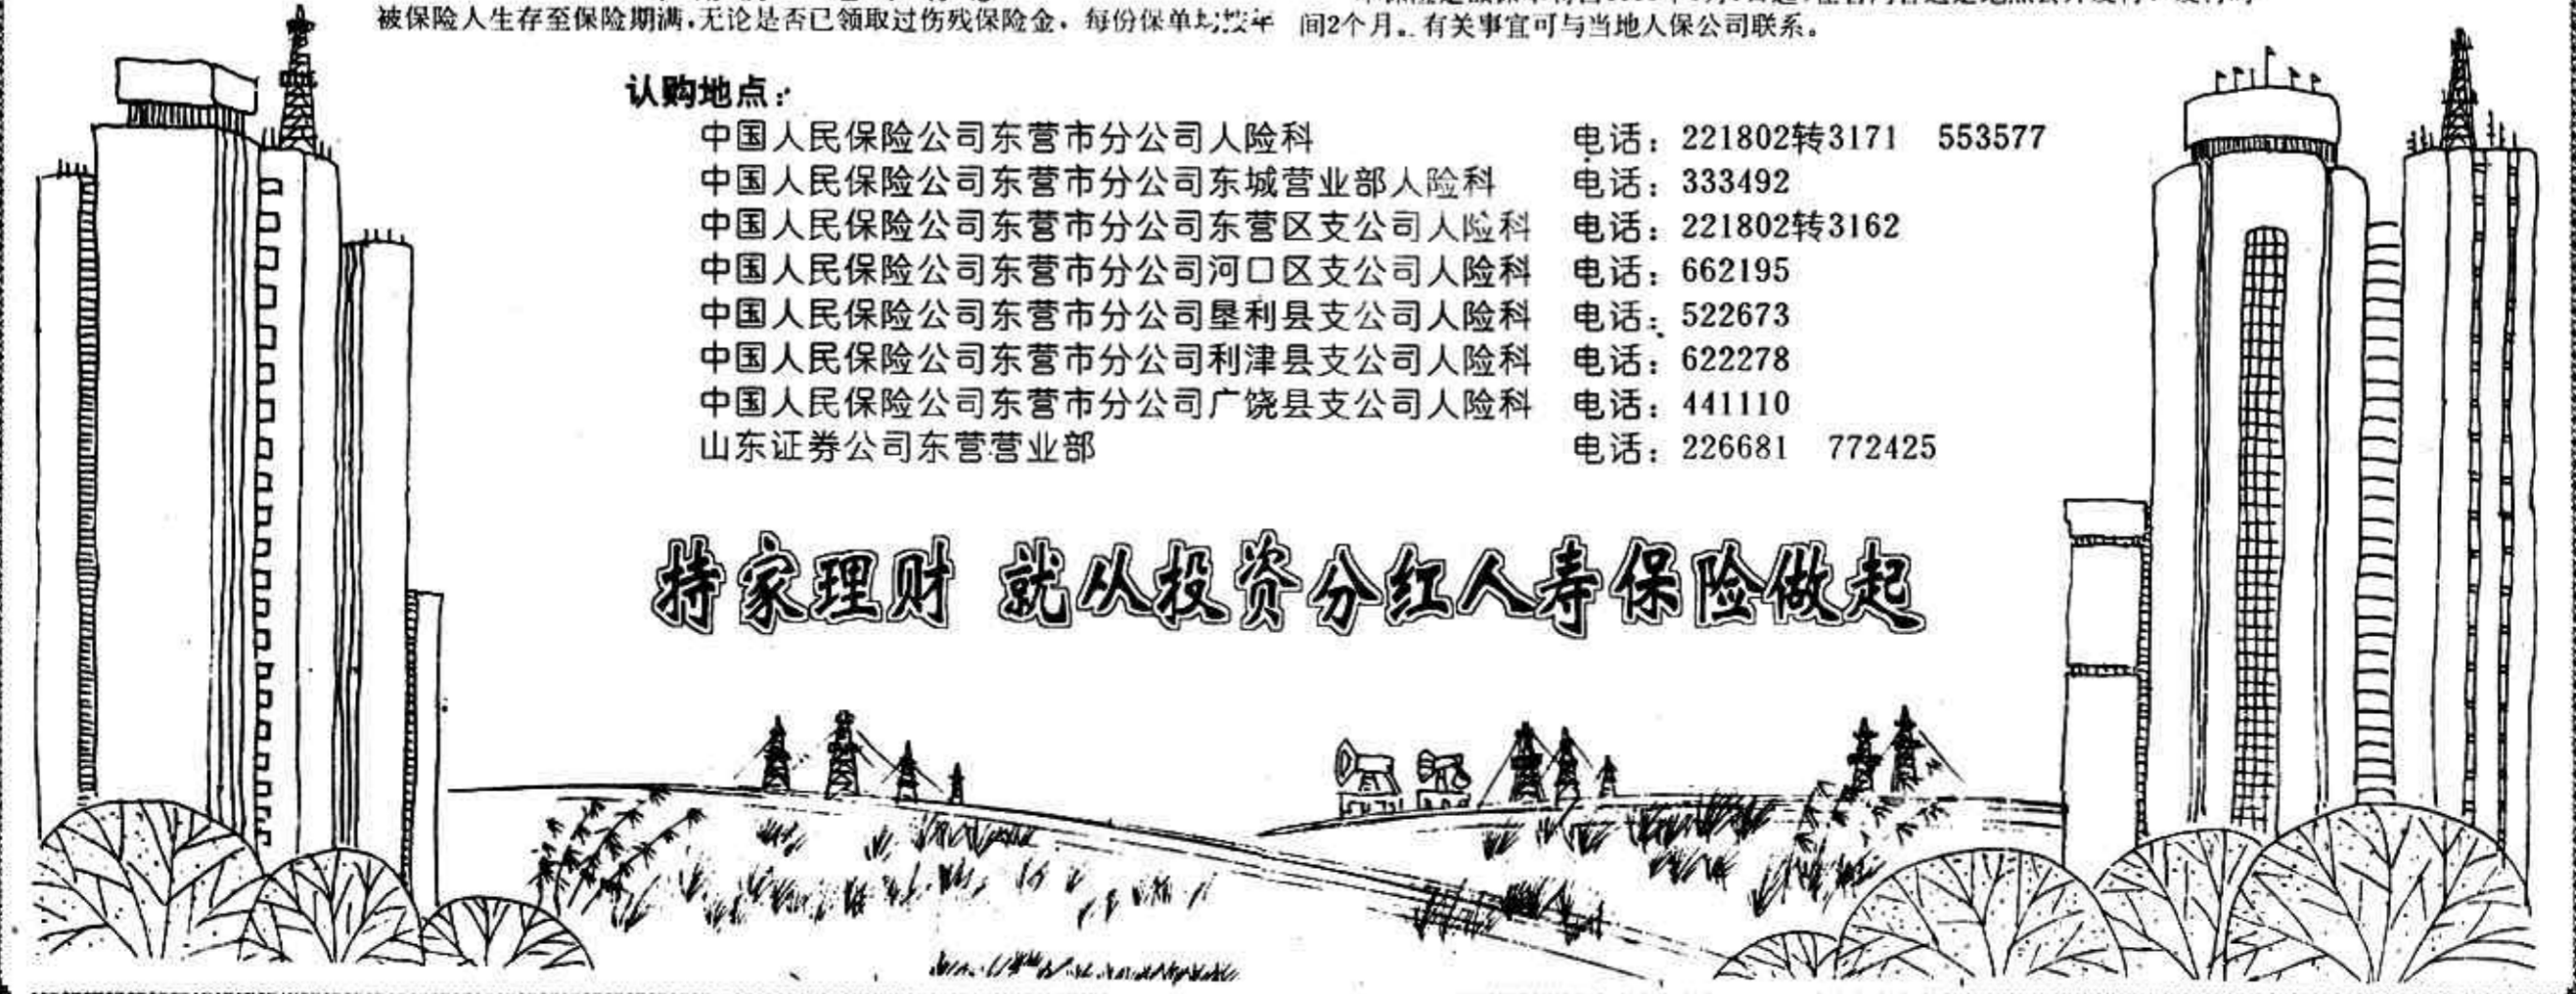 被保险人生存至保险期满,无论是否已领取过伤残保险金,每份保单均按年
间2个月。有关事宜可与当地人保公司联系。
认购地点:
中国人民保险公司东营市分公司人险科 电话：221802转3171 553577
中国人民保险公司东营市分公司东城营业部人险科 电话：333492
中国人民保险公司东营市分公司东营区支公司人险科 电话：221802转3162
中国人民保险公司东营市分公司河口区支公司人险科 电话：662195
中国人民保险公司东营市分公司垦利县支公司人险科 电话：522673
中国人民保险公司东营市分公司利津县支公司人险科 电话：622278
中国人民保险公司东营市分公司广饶县支公司人险科 电话：441110
山东证券公司东营营业部 电话：226681 772425
持家理财 就从投资分红人寿保险做起